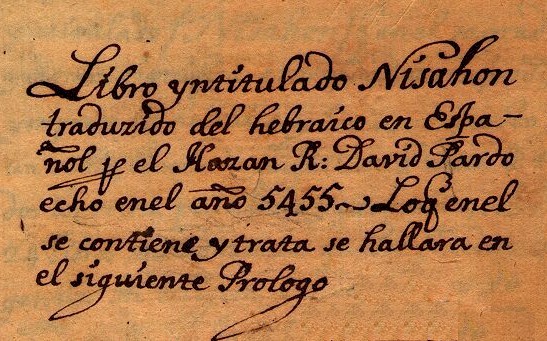 Libro yntitulado Nisahon
traduzido del hebraico en Espa-
ñol p el Hazan R: David Pardo
echo enel año 5455~ Loq̃ enel
se contiene y trata se hallara en
el siguiente Prologo